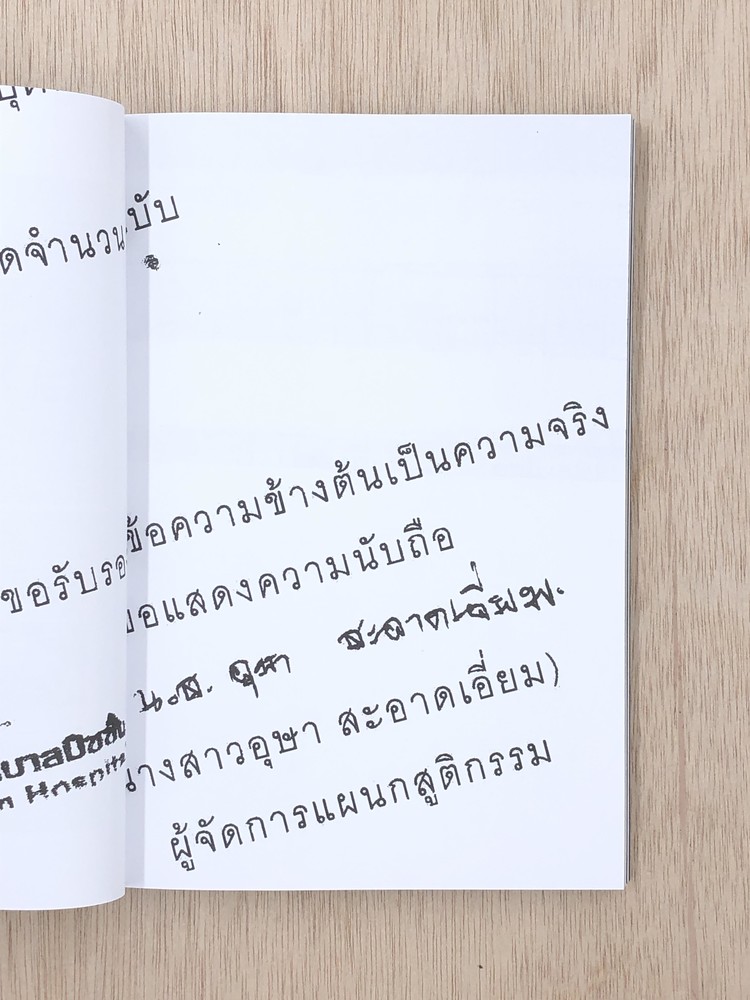 ดจำนวน บับ
ขอรับรอ ข้อความข้างต้นเป็นความจริง
ขอแสดงความนับถือ
น.ส. อุษา สะอาดเอี่ยม
นางสาวอุษา สะอาดเอี่ยม)
ผู้จัดการแผนกสูติกรรม